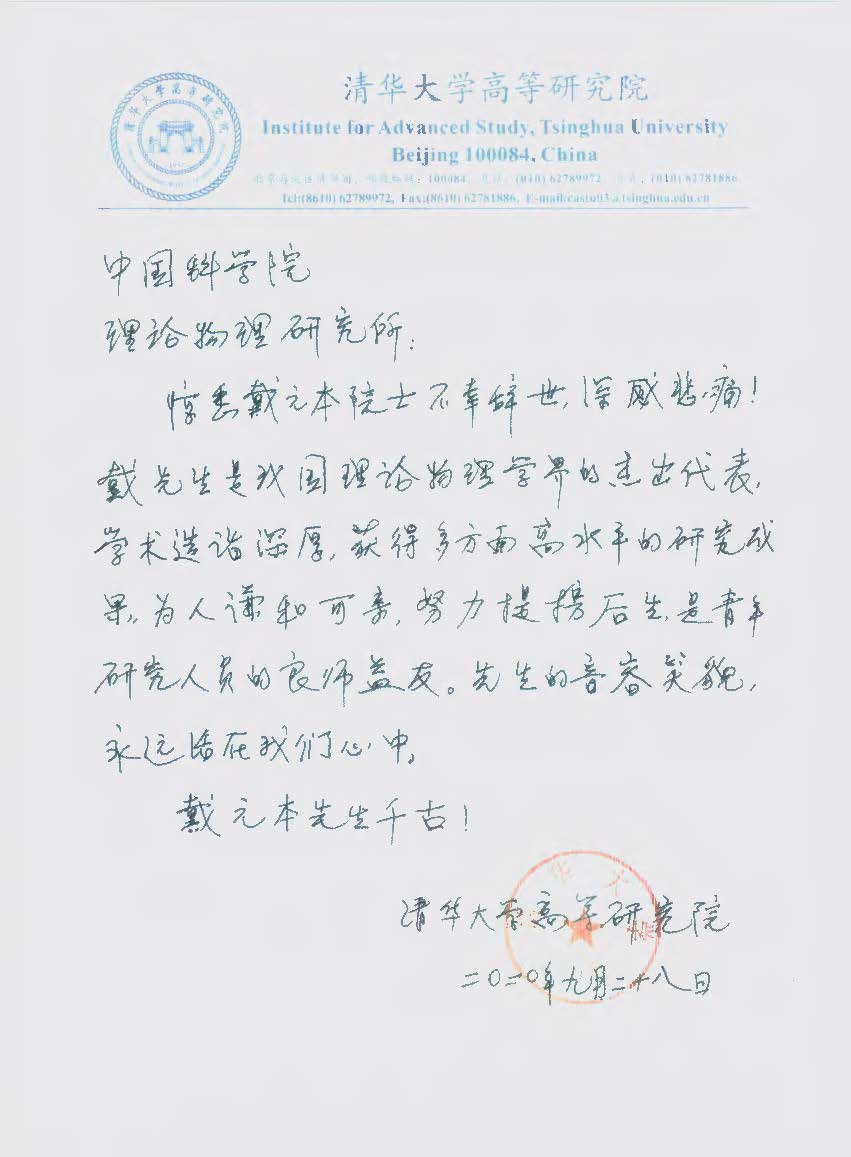 清华大学高等研究院
清华大学高等研究院
Institute for Advanced Study, Tsinghua University
Beijing 100084, China
北京海淀区清华园, 邮政编码: 100084, 电话: (010) 62789972 传真: (010) 62781886
Tel:(8610) 62789972, Fax:(8610) 62781886, E-mail:castu03@tsinghua.edu.cn
中国科学院
理论物理研究所:
惊悉戴元本院士不幸辞世,深感悲痛!
戴先生是我国理论物理学界的杰出代表,
学术造诣深厚,获得多方面高水平的研究成
果,为人谦和可亲,努力提携后生,是青年
研究人员的良师益友。先生的音容笑貌,
永远活在我们心中。
戴元本先生千古!
清华大学高等研究院
二〇二〇年九月二十八日